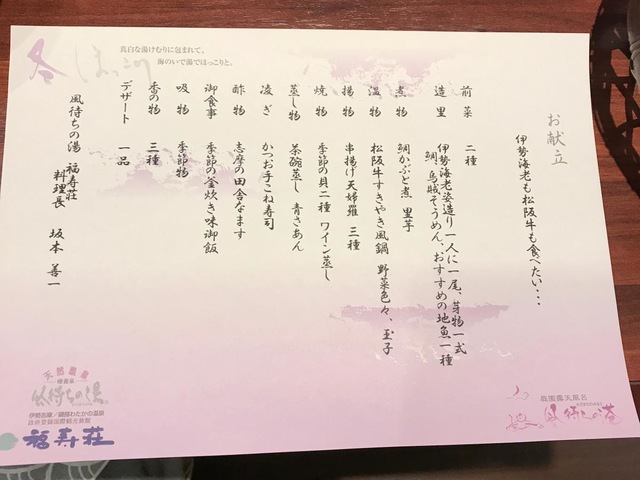 冬 ほっこり
真白な湯けむりに包まれて、
海のいで湯でほっこりと。
お献立
伊勢海老も松阪牛も食べたい・・・
前菜 二種
造里 伊勢海老姿造り 一人に一尾、芽物一式
鯛 烏賊そうめん、おすすめの地魚一種
煮物 鯛かぶと煮 里芋
温物 松阪牛すきやき風鍋 野菜色々、玉子
揚物 串揚げ天婦羅 三種
焼物 季節の貝二種 ワイン蒸し
蒸し物 茶碗蒸し 青さあん
凌ぎ かつお手こね寿司
酢物 志摩の田舎なます
御食事 季節の釜炊き味御飯
吸物 季節物
香の物 三種
デザート 一品
風待ちの湯 福寿荘
料理長 坂本 善一
天然温泉
風待ちの湯
伊勢志摩/磯部わたかの温泉
政府登録国際観光旅館
福寿荘
庭園露天風呂